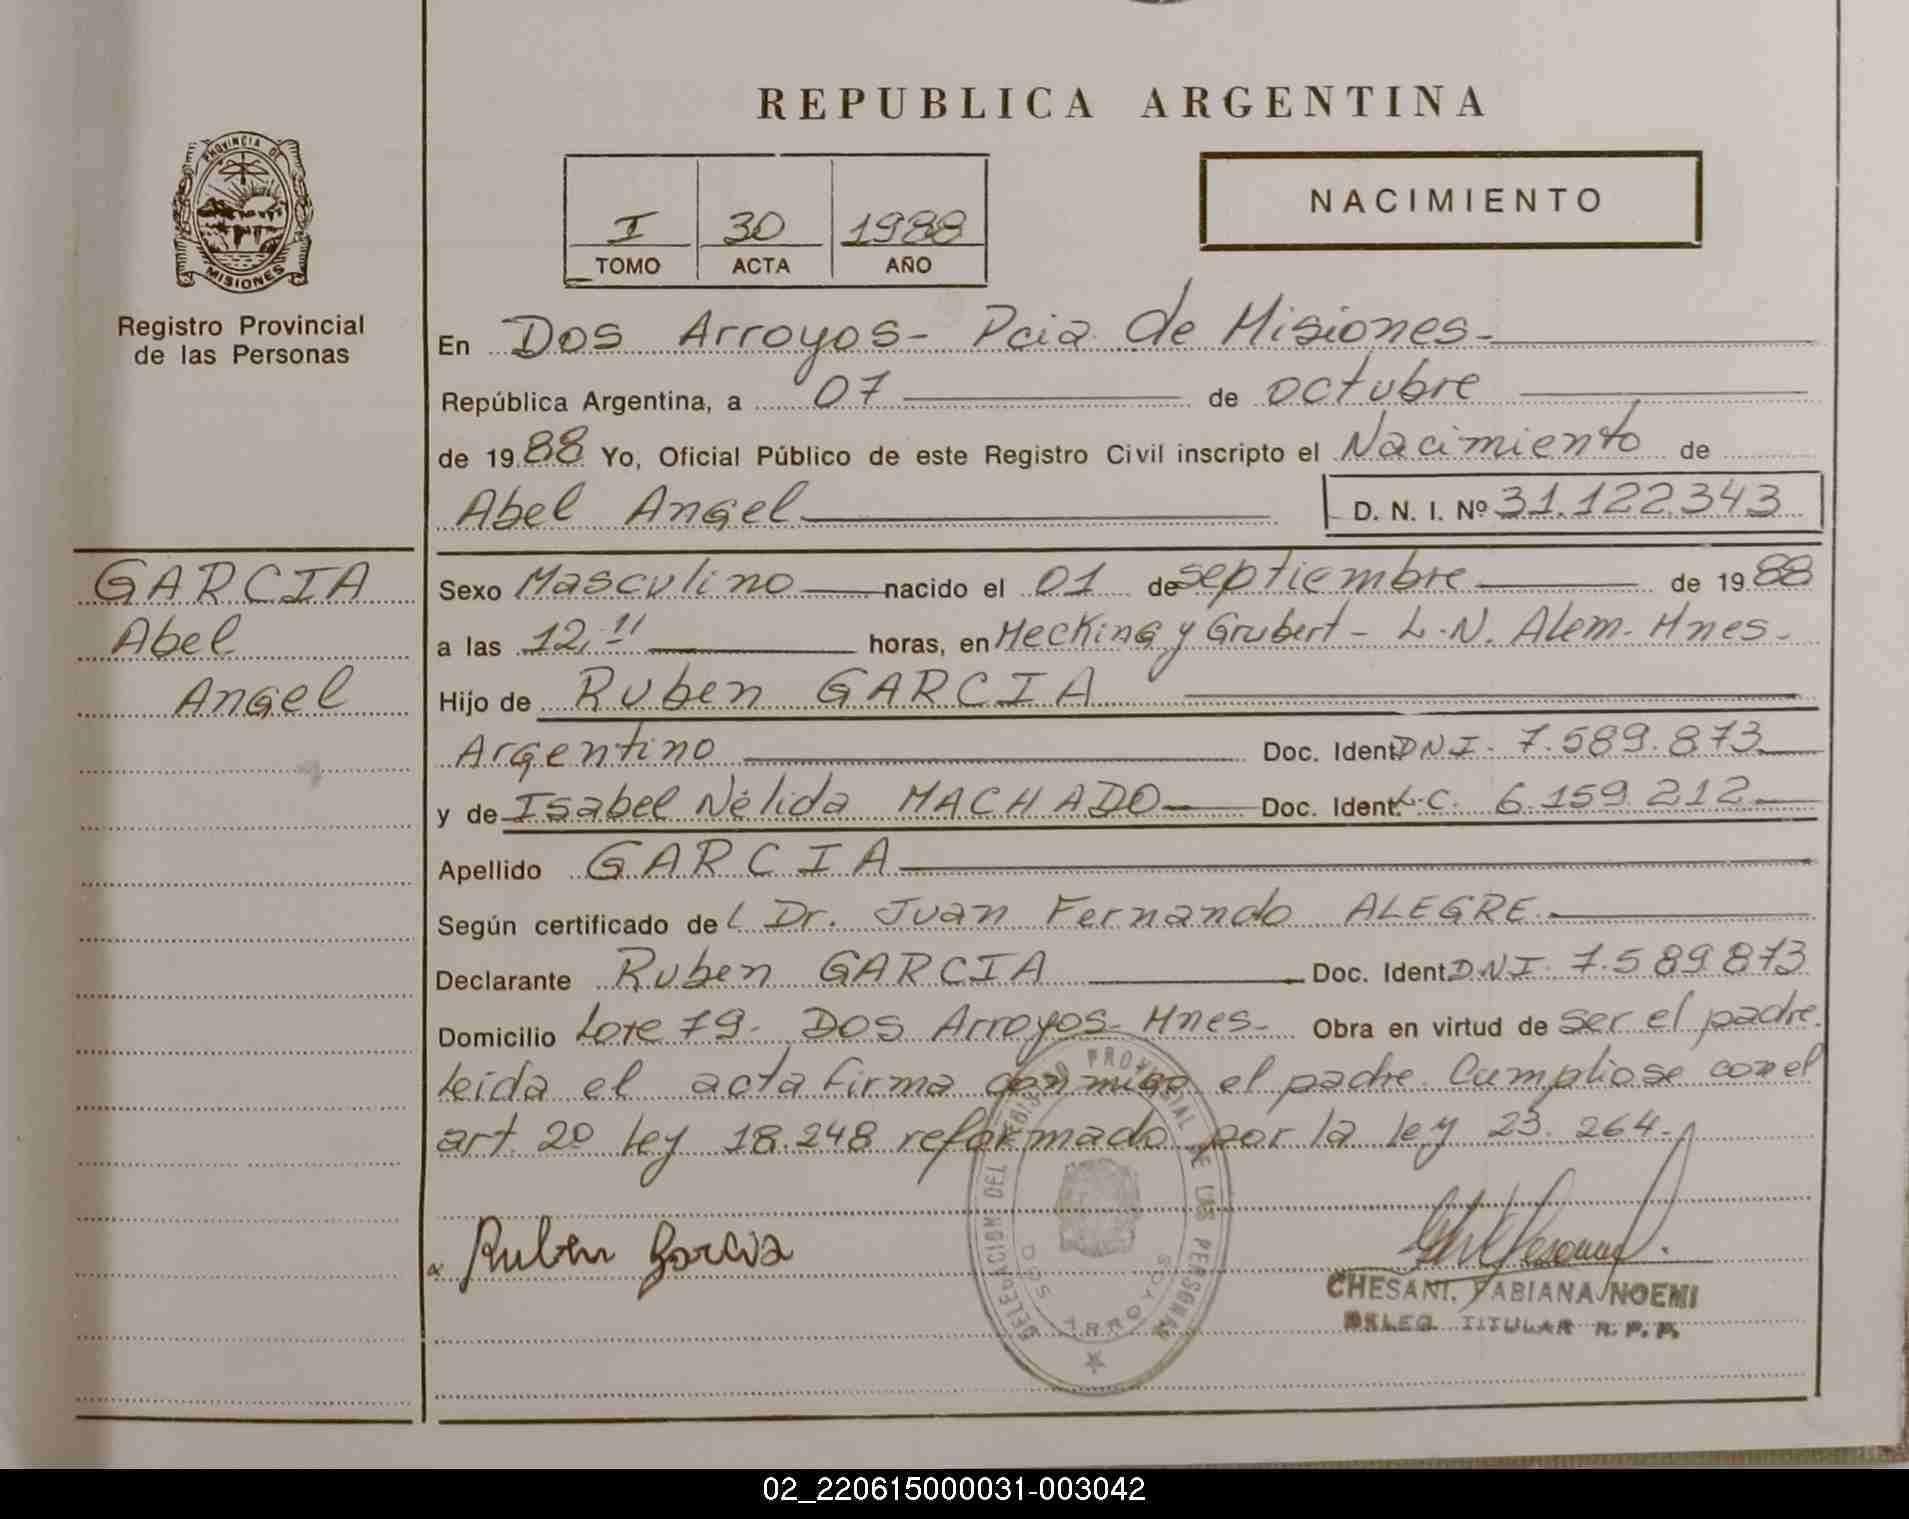 REPUBLICA ARGENTINA
PROVINCIA DE MISIONES
Registro Provincial
de las Personas
I 30 1988
TOMO ACTA AÑO
NACIMIENTO
En Dos Arroyos- Pcia de Misiones-
República Argentina, a 07 de octubre
de 1988 Yo, Oficial Público de este Registro Civil inscripto el Nacimiento de
Abel Angel D. N. I. Nº 31.122.343
GARCIA
Abel
Angel
Sexo Masculino nacido el 01 de septiembre de 1988
a las 12,11 horas, en Hecking y Grubert - L.N. Alem- Mnes-
Hijo de Ruben GARCIA
Argentino Doc. Ident. DNI. 7.589.873
y de Isabel Nélida MACHADO Doc. Ident. L.C. 6.159.212
Apellido GARCIA
Según certificado del Dr. Juan Fernando ALEGRE.
Declarante Ruben GARCIA Doc. Ident. D.N.I. 7.589873
Domicilio Lote 79- Dos Arroyos- Mnes- Obra en virtud de ser el padre.
Leída el acta firma conmigo el padre. Cumpliose con el
art. 2º Ley 18.248 reformado por la ley 23.264-
Ruben Garcia
DELEGACION DEL REGISTRO PROVINCIAL DE LAS PERSONAS
DOS ARROYOS
CHESANI, FABIANA NOEMI
DELEG. TITULAR R. P. P.
02_220615000031-003042